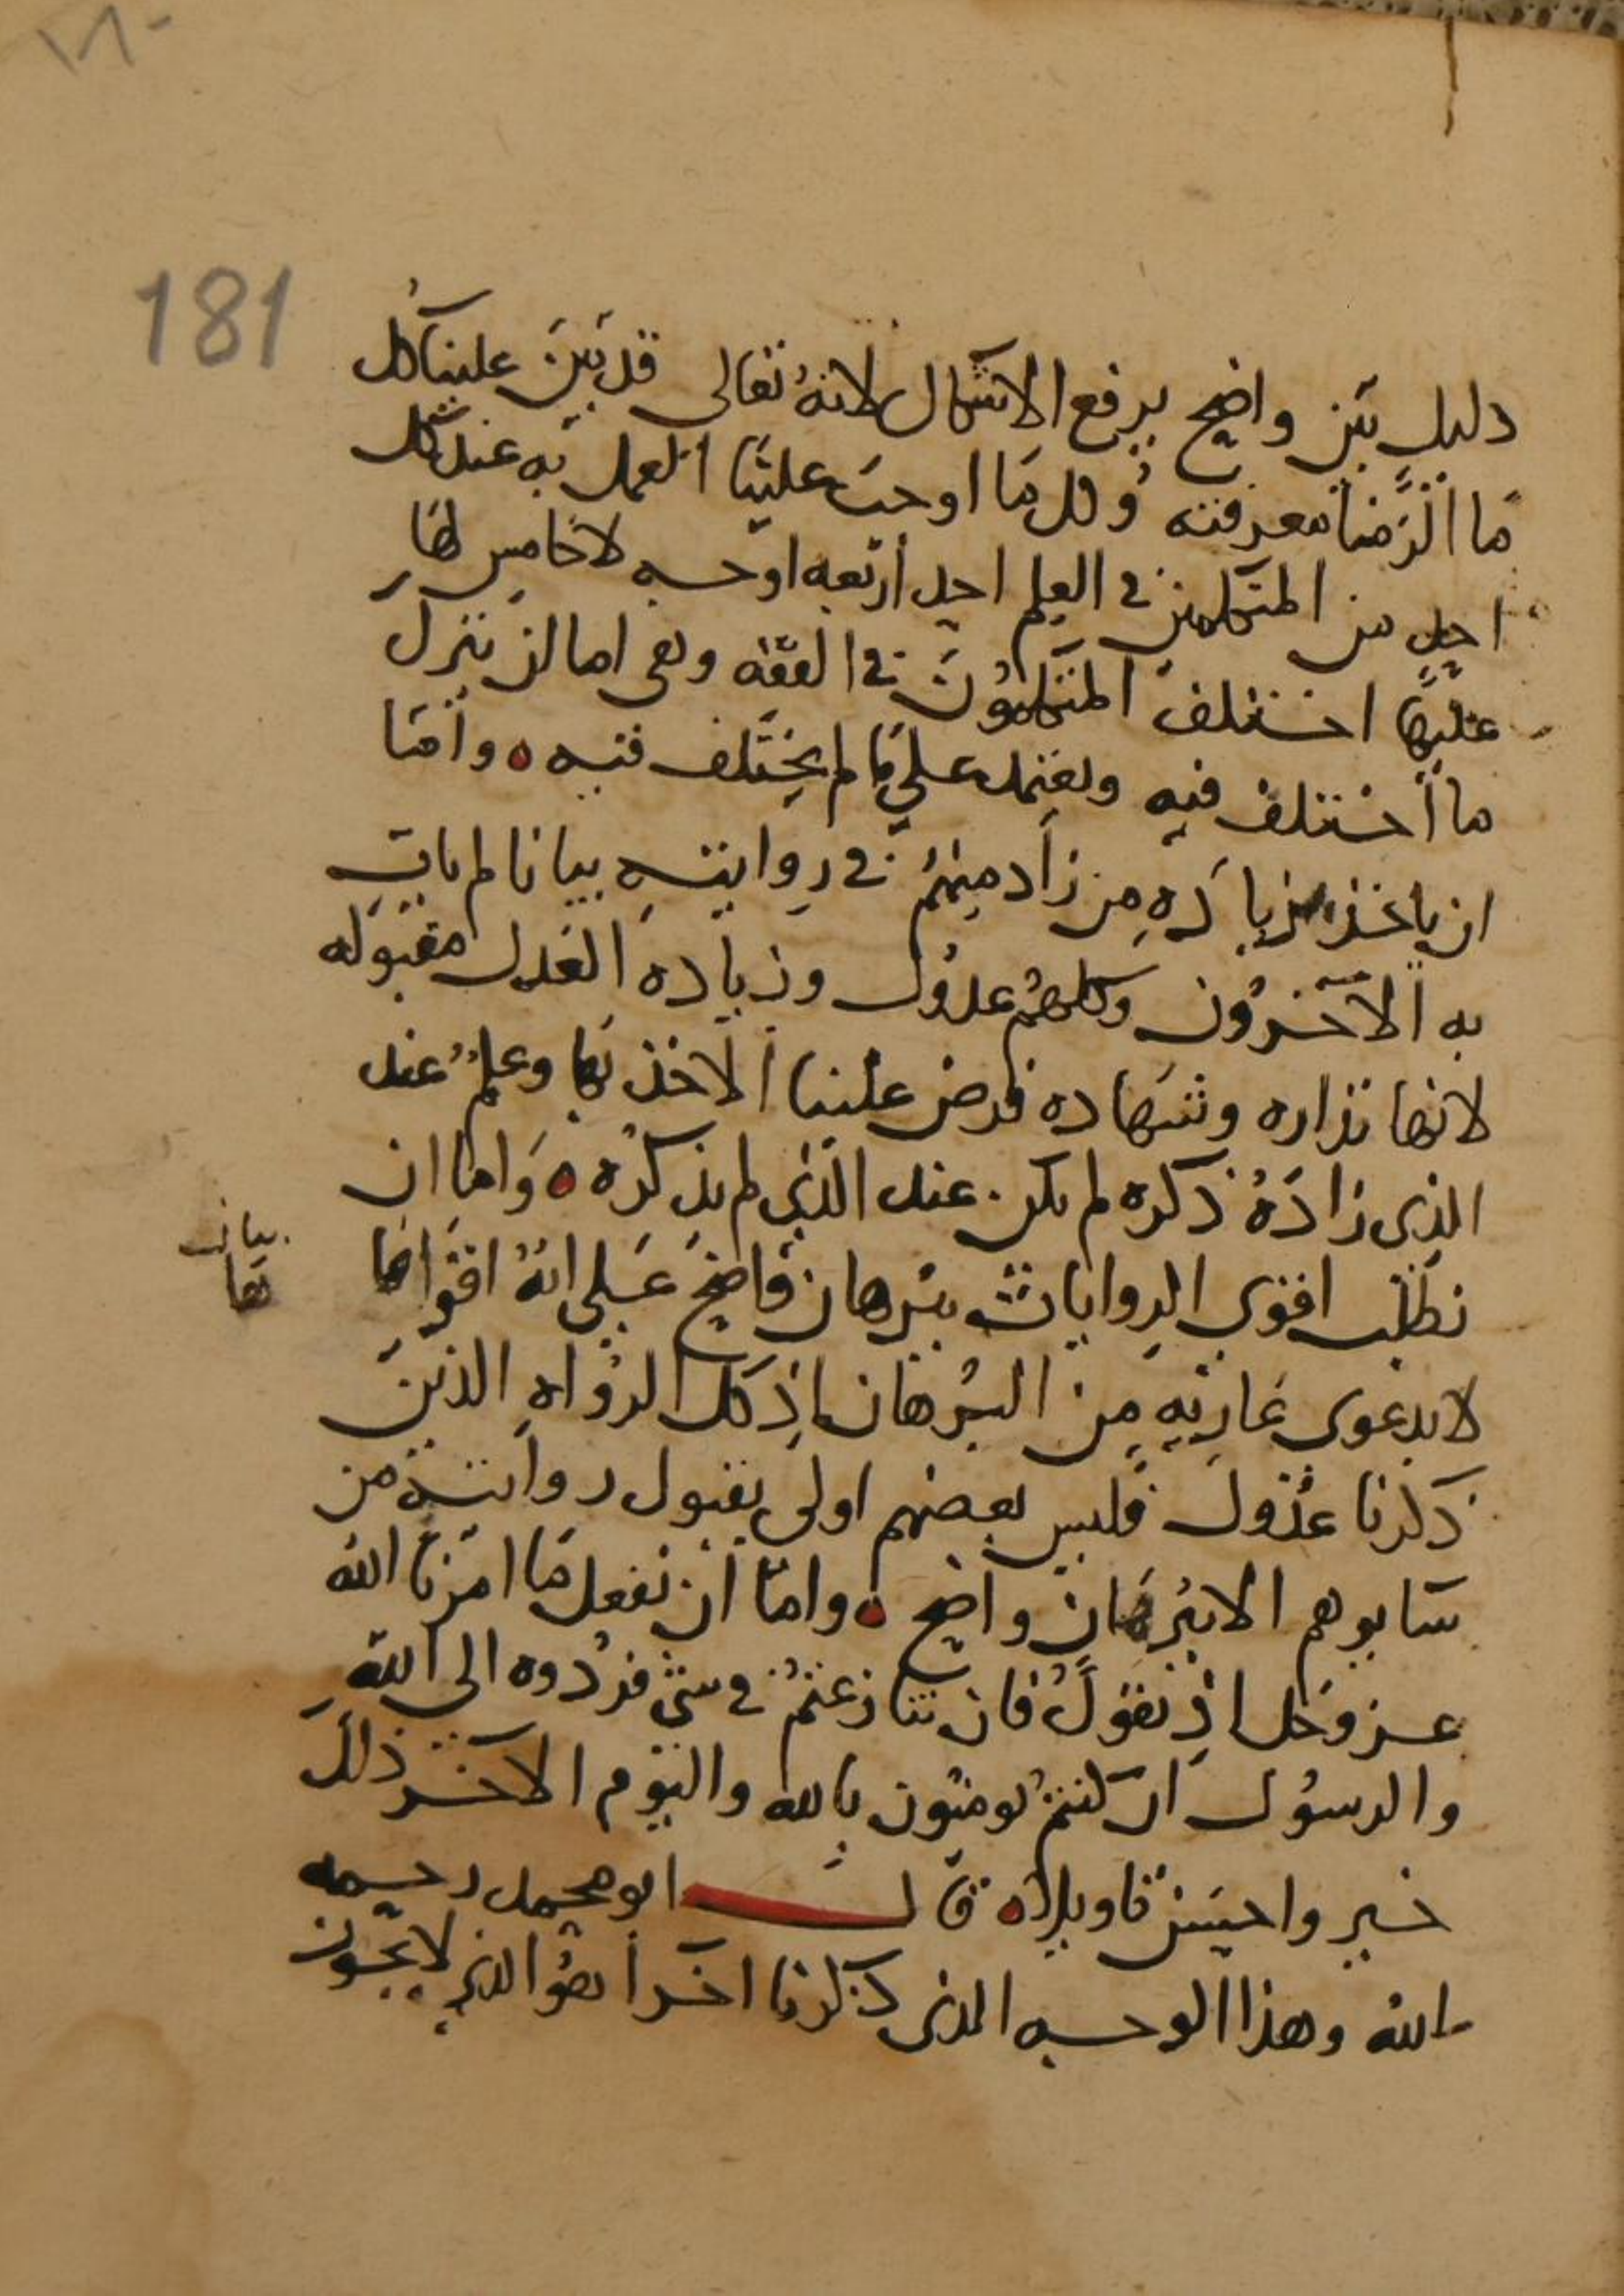 181
دليل بين واضح يرفع الاشكال لانه تعالى قد بين علينا كل
ما الزمنا معرفته وكل ما اوجب علينا العمل به عند كل
احد من المتكلمين في العلم احد أربعة اوجه لا خامس لها
عليها اختلف المتكلمون في الفقه وهي اما ان نترك
ما اختلف فيه ونعتمد على ما لم يختلف فيه ه واما
ان ياخذ بزيادة من زاد منهم في روايته بيانا لم يات
به الآخرون وكلهم عدول وزيادة العدل مقبوله
لانها نذاره وشهاده فرض علينا الاخذ بها وعلم عند
الذي زاده ذكره لم يكن عند الذي لم يذكره ه واما ان
نطلب اقوى الروايات ببرهان واضح على انه اقواها
بيان
ها
لا بدعوى عارية من البرهان اذ كل الرواه الذين
ذكرنا عدول فليس بعضهم اولى بقبول روايته من
سايرهم الا ببرهان واضح ه واما ان نفعل ما امرنا الله
عز وجل اذ يقول فان تنازعتم في شي فردوه الى الله
والرسول ان كنتم تومنون بالله واليوم الآخر ذلك
خير واحسن تاويلا ه قال ابو محمد رحمه
الله وهذا الوجه الذي ذكرنا اخرا هو الذي لا يجوز